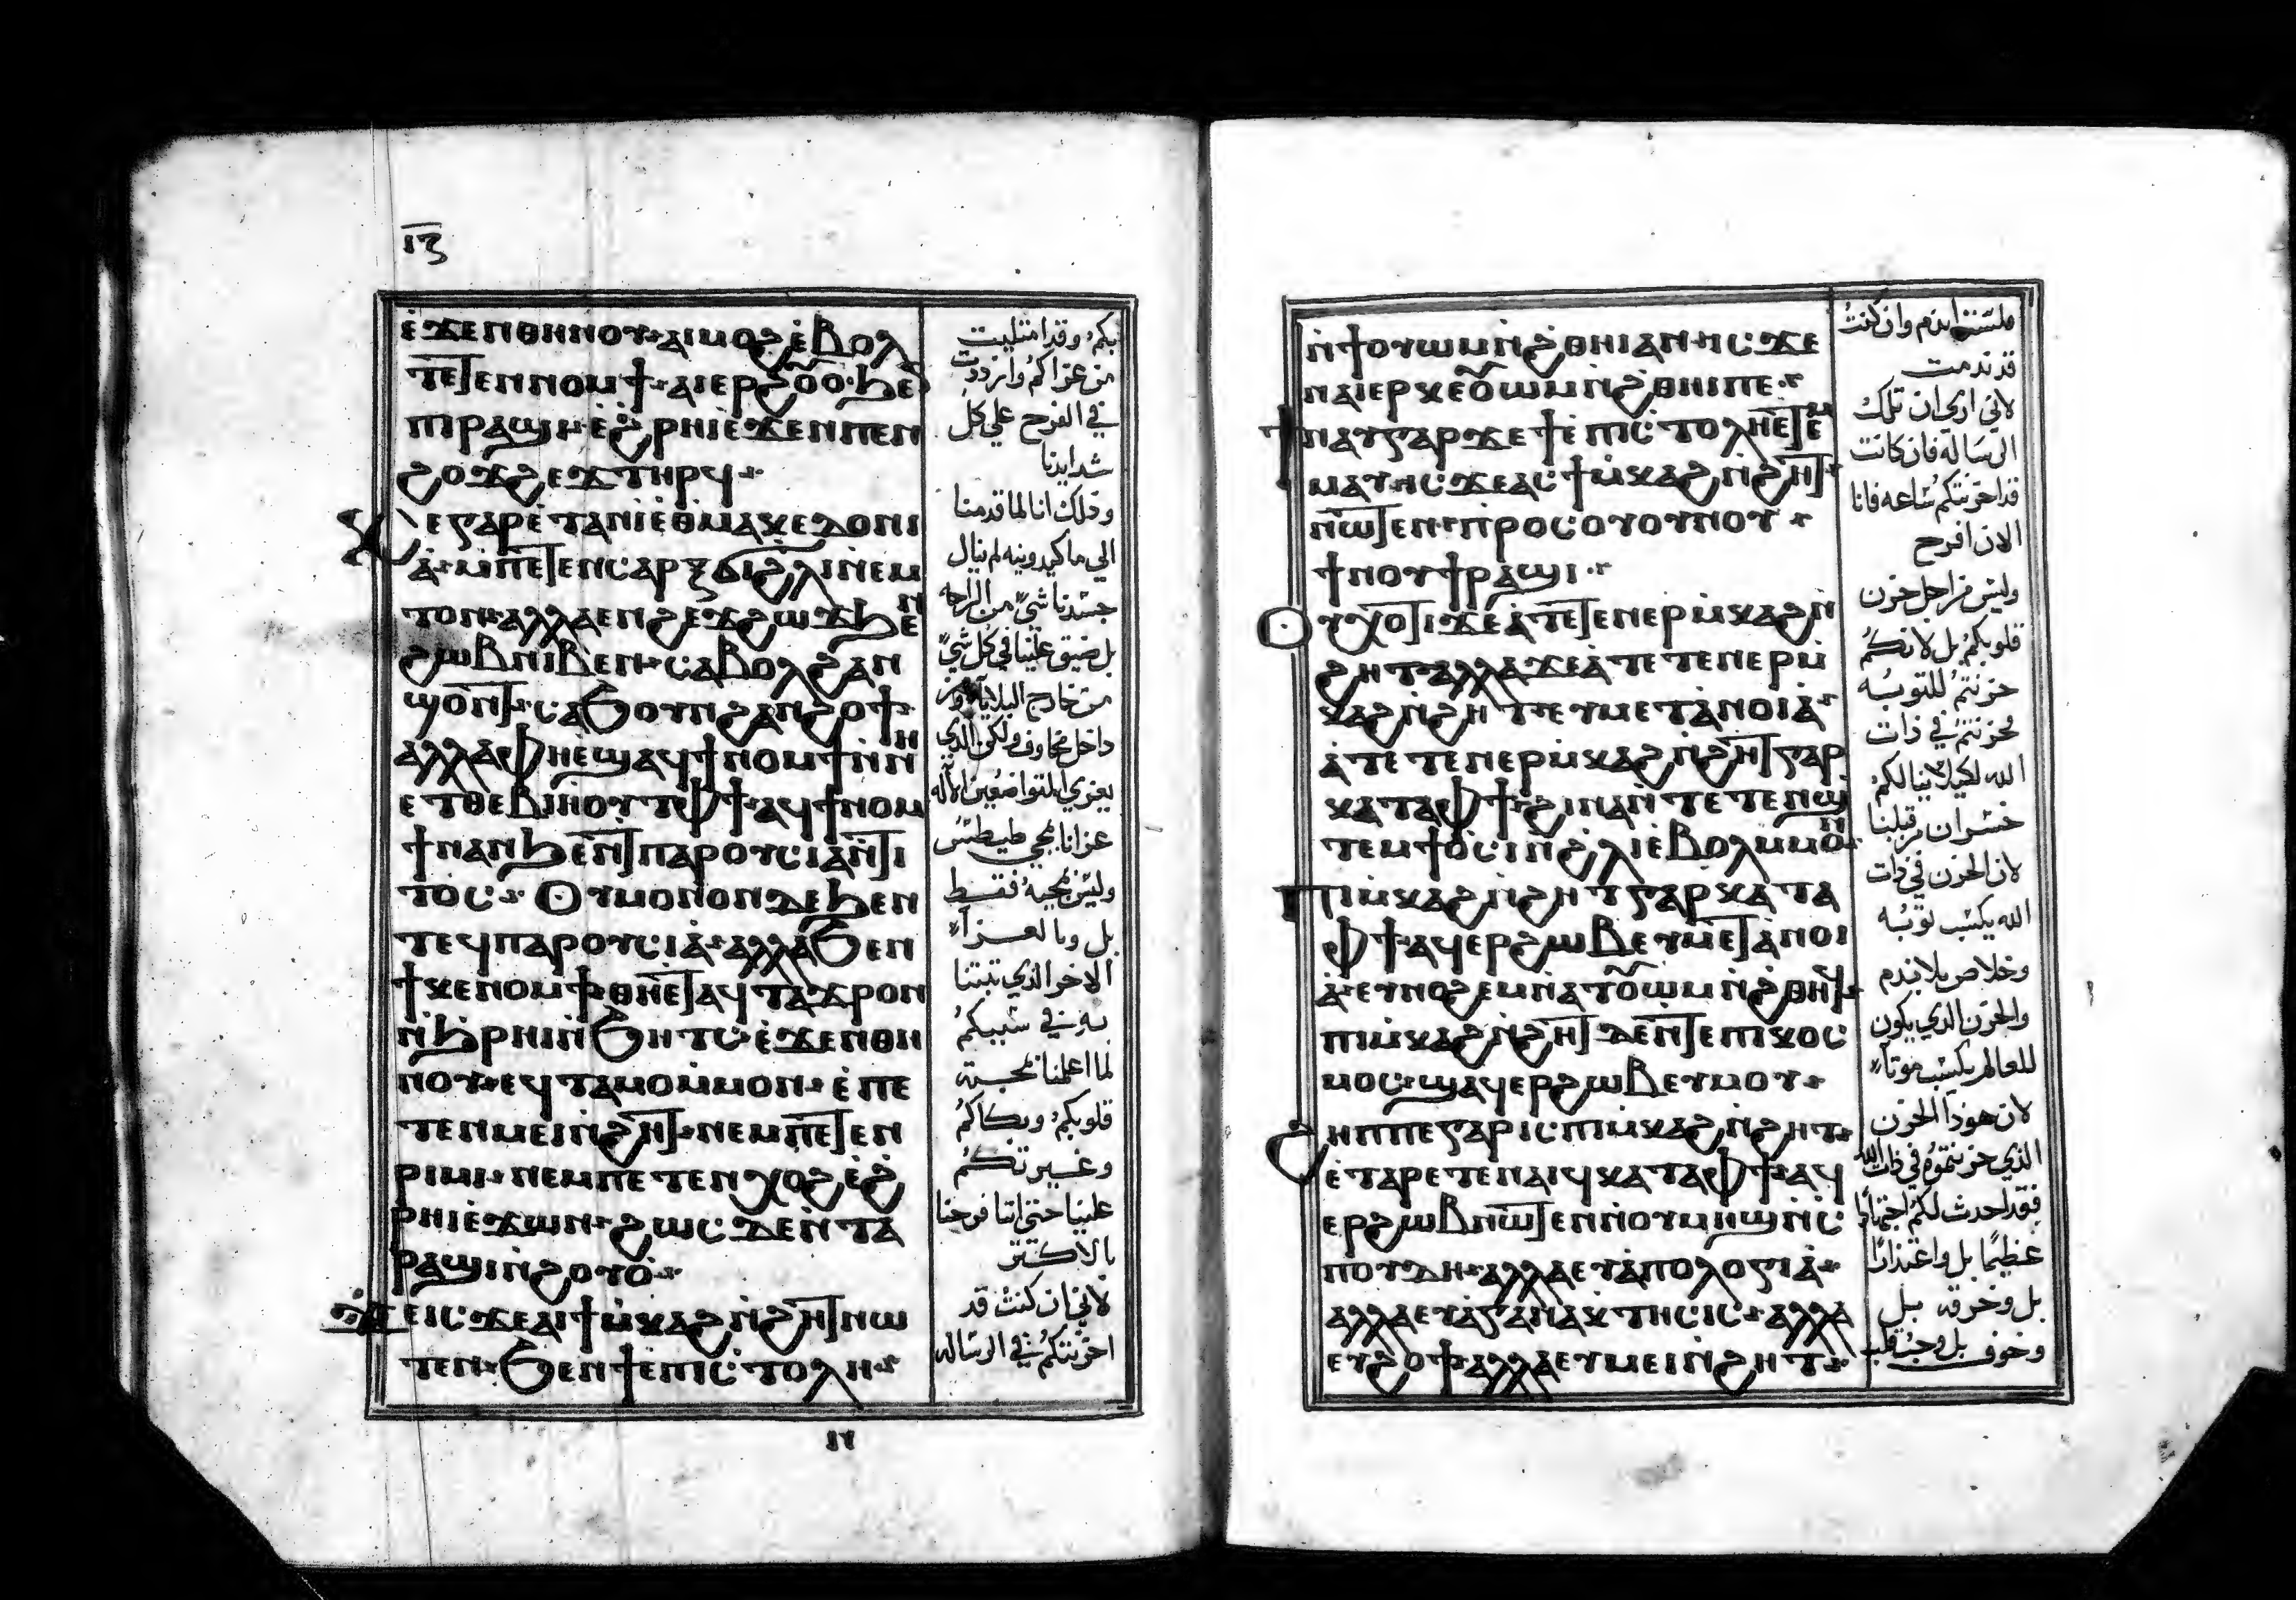 ⲓⲍ
ⲉ̀ϫⲉⲛⲑⲏⲛⲟⲩ·ⲁⲓⲙⲟϩⲉ̀ⲃⲟⲗ
ⲧⲉⲧⲉⲛⲛⲟⲙϯ·ⲁⲓⲉⲣϩⲟⲩⲟ̀·ϧⲉⲛ
ⲡⲓⲣⲁϣⲓ·ⲉ̀ϩ̀ⲣⲏⲓⲉ̀ϫⲉⲛⲡⲉⲛ
ϩⲟϫϩⲉϫⲧⲏⲣϥ·
ⲕⲉⲅⲁⲣⲉ̀ⲧⲁⲛⲓ̀ⲉ̀ⲑⲙⲁⲕⲉⲇⲟⲛⲓ
ⲁ̀·ⲙ̀ⲡⲉⲧⲉⲛⲥⲁⲣⲝϭⲓϩ̀ⲗⲓⲛ̀ⲉⲙ
ⲧⲟⲛ·ⲁⲗⲗⲁⲉⲛϩⲉϫϩⲱϫϧⲉⲛ
ϩⲱⲃⲛⲓⲃⲉⲛ·ⲥⲁⲃⲟⲗϩⲁⲛ
ϣⲟⲛⲧ·ⲥⲁϧⲟⲩⲛϩⲁⲛϩⲟϯ·
ⲁⲗⲗⲁⲫⲏⲉ̀ϣⲁϥϯⲛⲟⲙϯⲛ̀ⲛⲏ
ⲉⲧⲑⲉⲃⲓⲏⲟⲩⲧⲫϯ·ⲁϥϯⲛⲟⲙ
ϯⲛⲁⲛϧⲉⲛⲧⲡⲁⲣⲟⲩⲥⲓⲁⲛ̀ⲧⲓ
ⲧⲟⲥ· ⲟⲩⲙⲟⲛⲟⲛⲇⲉϧⲉⲛ
ⲧⲉϥⲡⲁⲣⲟⲩⲥⲓⲁ̀·ⲁⲗⲗⲁϧⲉⲛ
ϯⲕⲉⲛⲟⲙϯ·ⲑⲏⲉⲧⲁϥⲧⲁϫⲣⲟⲛ
ⲛ̀ϧⲣⲏⲓⲛ̀ϧⲏⲧⲥ·ⲉ̀ϫⲉⲛⲑⲏ
ⲛⲟⲩ·ⲉϥⲧⲁⲙⲟⲙ̀ⲙⲟⲛ·ⲉ̀ⲡⲉ
ⲧⲉⲛⲙⲉⲓⲛ̀ϩⲏⲧ·ⲛⲉⲙⲡⲉⲧⲉⲛ
ⲣⲓⲙⲓ·ⲛⲉⲙⲡⲉⲧⲉⲛⲭⲟϩⲉ̀ϩ̀
ⲣⲏⲓⲉ̀ϫⲱⲛ·ϩⲱⲥⲇⲉⲛ̀ⲧⲁ
ⲣⲁϣⲓⲛ̀ϩⲟⲩⲟ̀·
ϫⲉⲓⲥϫⲉⲁⲓϯⲙ̀ⲕⲁϩⲛ̀ϩⲏⲧⲛⲱ
ⲧⲉⲛ·ϧⲉⲛϯⲉⲡⲓⲥⲧⲟⲗⲏ·
بكم، وقد امتليت
من عزاكم وازددت
في الفرح علي كل
شدايدنا
وذلك انا لما قدمنا
الي ماكيدونيه لم ينال
جسدنا شيً من الراحه
بل ضيق علينا في كل شيً
من خارج البلايا ومن
داخل مخاوف ولكن الذي
يعزي المتواضعين الاله
عزانا بمجي طيطس
وليس بمجيه فقط
بل وبالعزآ
الاخر الذي تبتنا
به في سببكم
لما اعلمنا بمحبة
قلوبكم، وبكاكم
وغيرتكم
علينا حتي اننا فرحنا
بالاكتر
لاني ان كنت قد
احزنتكم في الرساله
ⲛϯⲟⲩⲱⲙⲛ̀ϩ̀ⲑⲏⲓⲁⲛ·ⲓⲥϫⲉ
ⲛⲁⲓⲉⲣⲕⲉⲟⲩⲱⲙⲛ̀ϩ̀ⲑⲏⲓⲡⲉ·
ϯⲛⲁⲩⲅⲁⲣϫⲉϯⲉ̀ⲡⲓⲥⲧⲟⲗⲏⲉ̀ⲧⲉⲙ
ⲙⲁⲩ·ⲓⲥϫⲉⲁⲥϯⲙ̀ⲕⲁϩⲛ̀ϩⲏⲧ·
ⲛⲱⲧⲉⲛ·ⲡⲣⲟⲥⲟⲩⲟⲩⲛⲟⲩ·
ϯⲛⲟⲩϯⲣⲁϣⲓ·
ⲟⲩⲭⲟⲧⲓϫⲉⲁ̀ⲧⲉⲧⲉⲛⲉⲣⲙ̀ⲕⲁϩⲛ̀
ϩⲏⲧ·ⲁⲗⲗⲁϫⲉⲁ̀ⲧⲉⲧⲉⲛⲉⲣⲙ̀
ⲕⲁϩⲛ̀ϩⲏⲧ·ⲉⲩⲙⲉⲧⲁⲛⲟⲓⲁ̀·
ⲁ̀ⲧⲉⲧⲉⲛⲉⲣⲙ̀ⲕⲁϩⲛ̀ϩⲏⲧⲅⲁⲣ
ⲕⲁⲧⲁⲫϯ·ϩⲓⲛⲁⲛ̀ⲧⲉⲧⲉⲛϣ
ⲧⲉⲙϯⲟ̀ⲥⲓⲛ̀ϩ̀ⲗⲓⲉ̀ⲃⲟⲗⲙ̀ⲙⲟⲛ·
ⲡⲓⲙ̀ⲕⲁϩⲛ̀ϩⲏⲧⲅⲁⲣⲕⲁⲧⲁ
ⲫϯ·ⲁϥⲉⲣϩⲱⲃⲉⲩⲙⲉⲧⲁⲛⲟⲓ
ⲁ̀·ⲉⲩⲛⲟϩⲉⲙⲛ̀ⲁⲧⲟⲩⲱⲙⲛ̀ϩ̀ⲑⲏϥ·
ⲡⲓⲙ̀ⲕⲁϩⲛ̀ϩⲏⲧⲇⲉⲛ̀ⲧⲉⲡⲓⲕⲟⲥ
ⲙⲟⲥ·ϣⲁϥⲉⲣϩⲱⲃⲉⲩⲙⲟⲩ·
ϩⲏⲡⲡⲉⲅⲁⲣⲓⲥⲡⲓⲙ̀ⲕⲁϩⲛ̀ϩⲏⲧ·
ⲉ̀ⲧⲁⲣⲉⲧⲉⲛⲁⲓϥⲕⲁⲧⲁⲫϯ·ⲁϥ
ⲉⲣϩⲱⲃⲛⲱⲧⲉⲛⲛ̀ⲟⲩⲙⲏϣⲛ̀ⲥ
ⲡⲟⲩⲇⲏ·ⲁⲗⲗⲁⲉⲩⲁ̀ⲡⲟⲗⲟⲅⲓⲁ̀·
ⲁⲗⲗⲁⲉⲩⲁ̀ⲅⲁⲛⲁⲕⲧⲏⲥⲓⲥ·ⲁⲗⲗⲁ
ⲉⲩϩⲟϯ·ⲁⲗⲗⲁⲉⲩⲙⲉⲓⲛ̀ϩⲏⲧ·
فلست اندم وان كنت
قد ندمت
لاني اري ان تلك
الرساله فان كانت
قد احزنتكم ساعه فانا
الان افرح
وليس من اجل حزن
قلوبكم بل لانكم
حزنتم للتوبه
فحزنتم في ذات
الله لكيلا ينالكم
خسران من قبلنا
لان الحزن في ذات
الله يكسب توبه
وخلاص بلا ندم
والحزن الذي يكون
للعالم يكسب موتاً
لان هوذا الحزن
الذي حزنتموه في ذات الله
فقد احدث لكم اجتهادا
عظيما بل واعتذارا
بل وحرقه بل
وخوف بل وحب قلب
ⲓⲩ